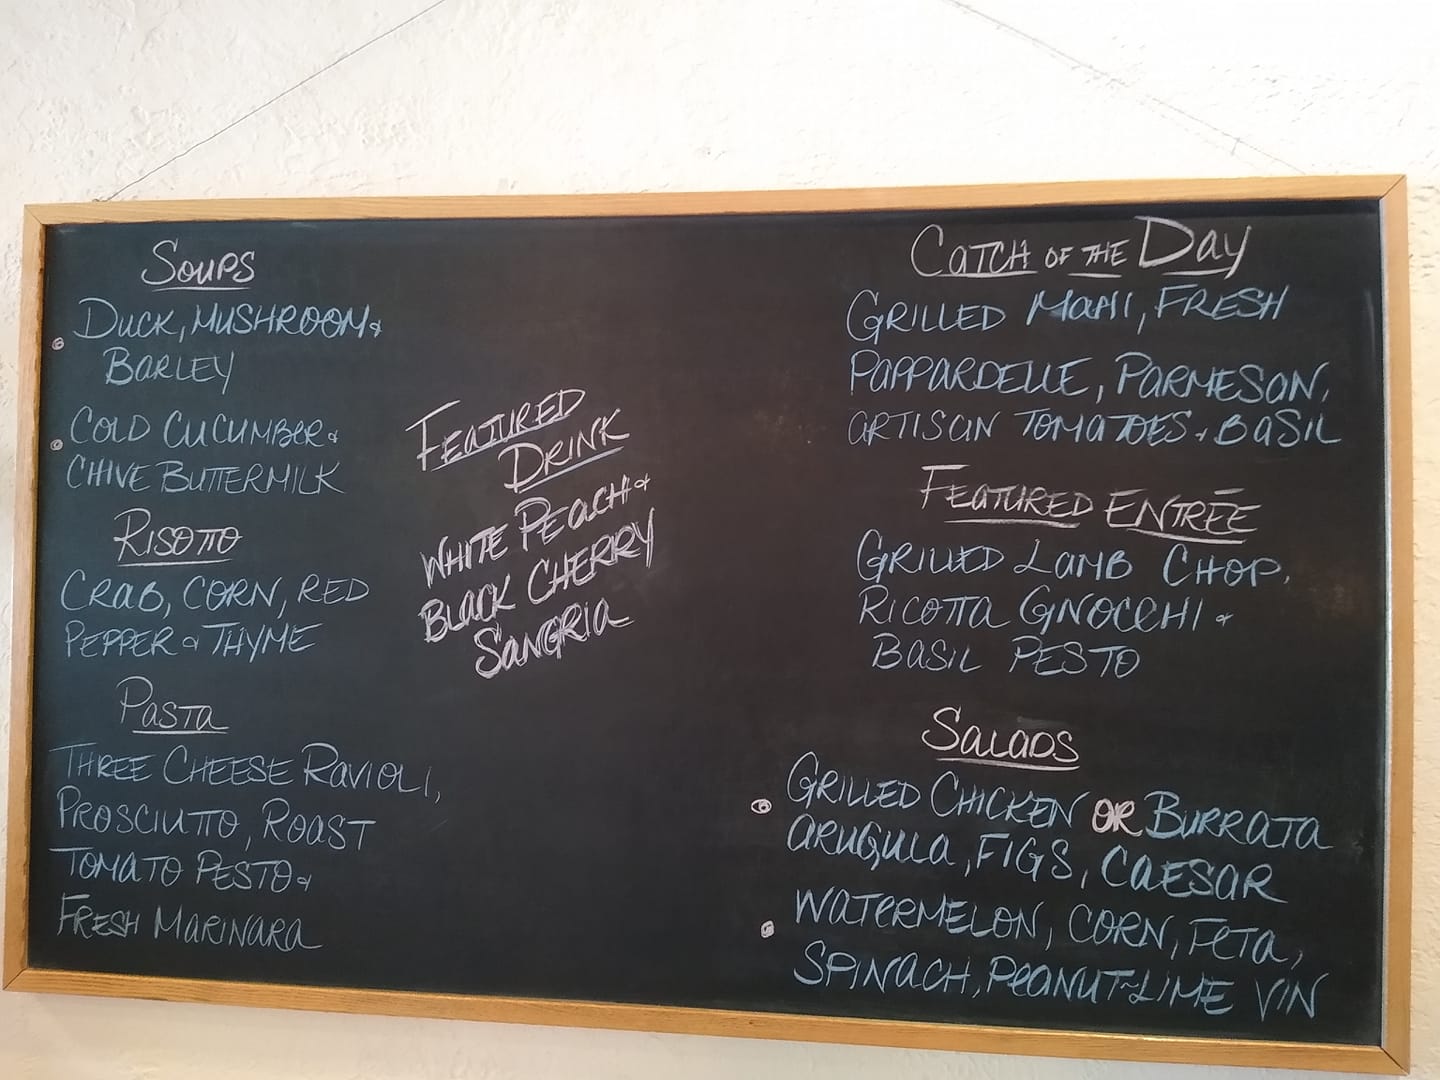 Soups
Duck, Mushroom &
Barley
Cold Cucumber &
Chive Buttermilk
Risotto
Crab, Corn, Red
Pepper & Thyme
Pasta
Three Cheese Ravioli,
Prosciutto, Roast
Tomato Pesto &
Fresh Marinara
Featured
Drink
White Peach &
Black Cherry
Sangria
Catch of the Day
Grilled Mahi, Fresh
Pappardelle, Parmesan,
Artisan Tomatoes, Basil
Featured Entrée
Grilled Lamb Chop,
Ricotta Gnocchi &
Basil Pesto
Salads
Grilled Chicken or Burrata
Arugula, Figs, Caesar
Watermelon, Corn, Feta,
Spinach, Peanut-Lime Vin